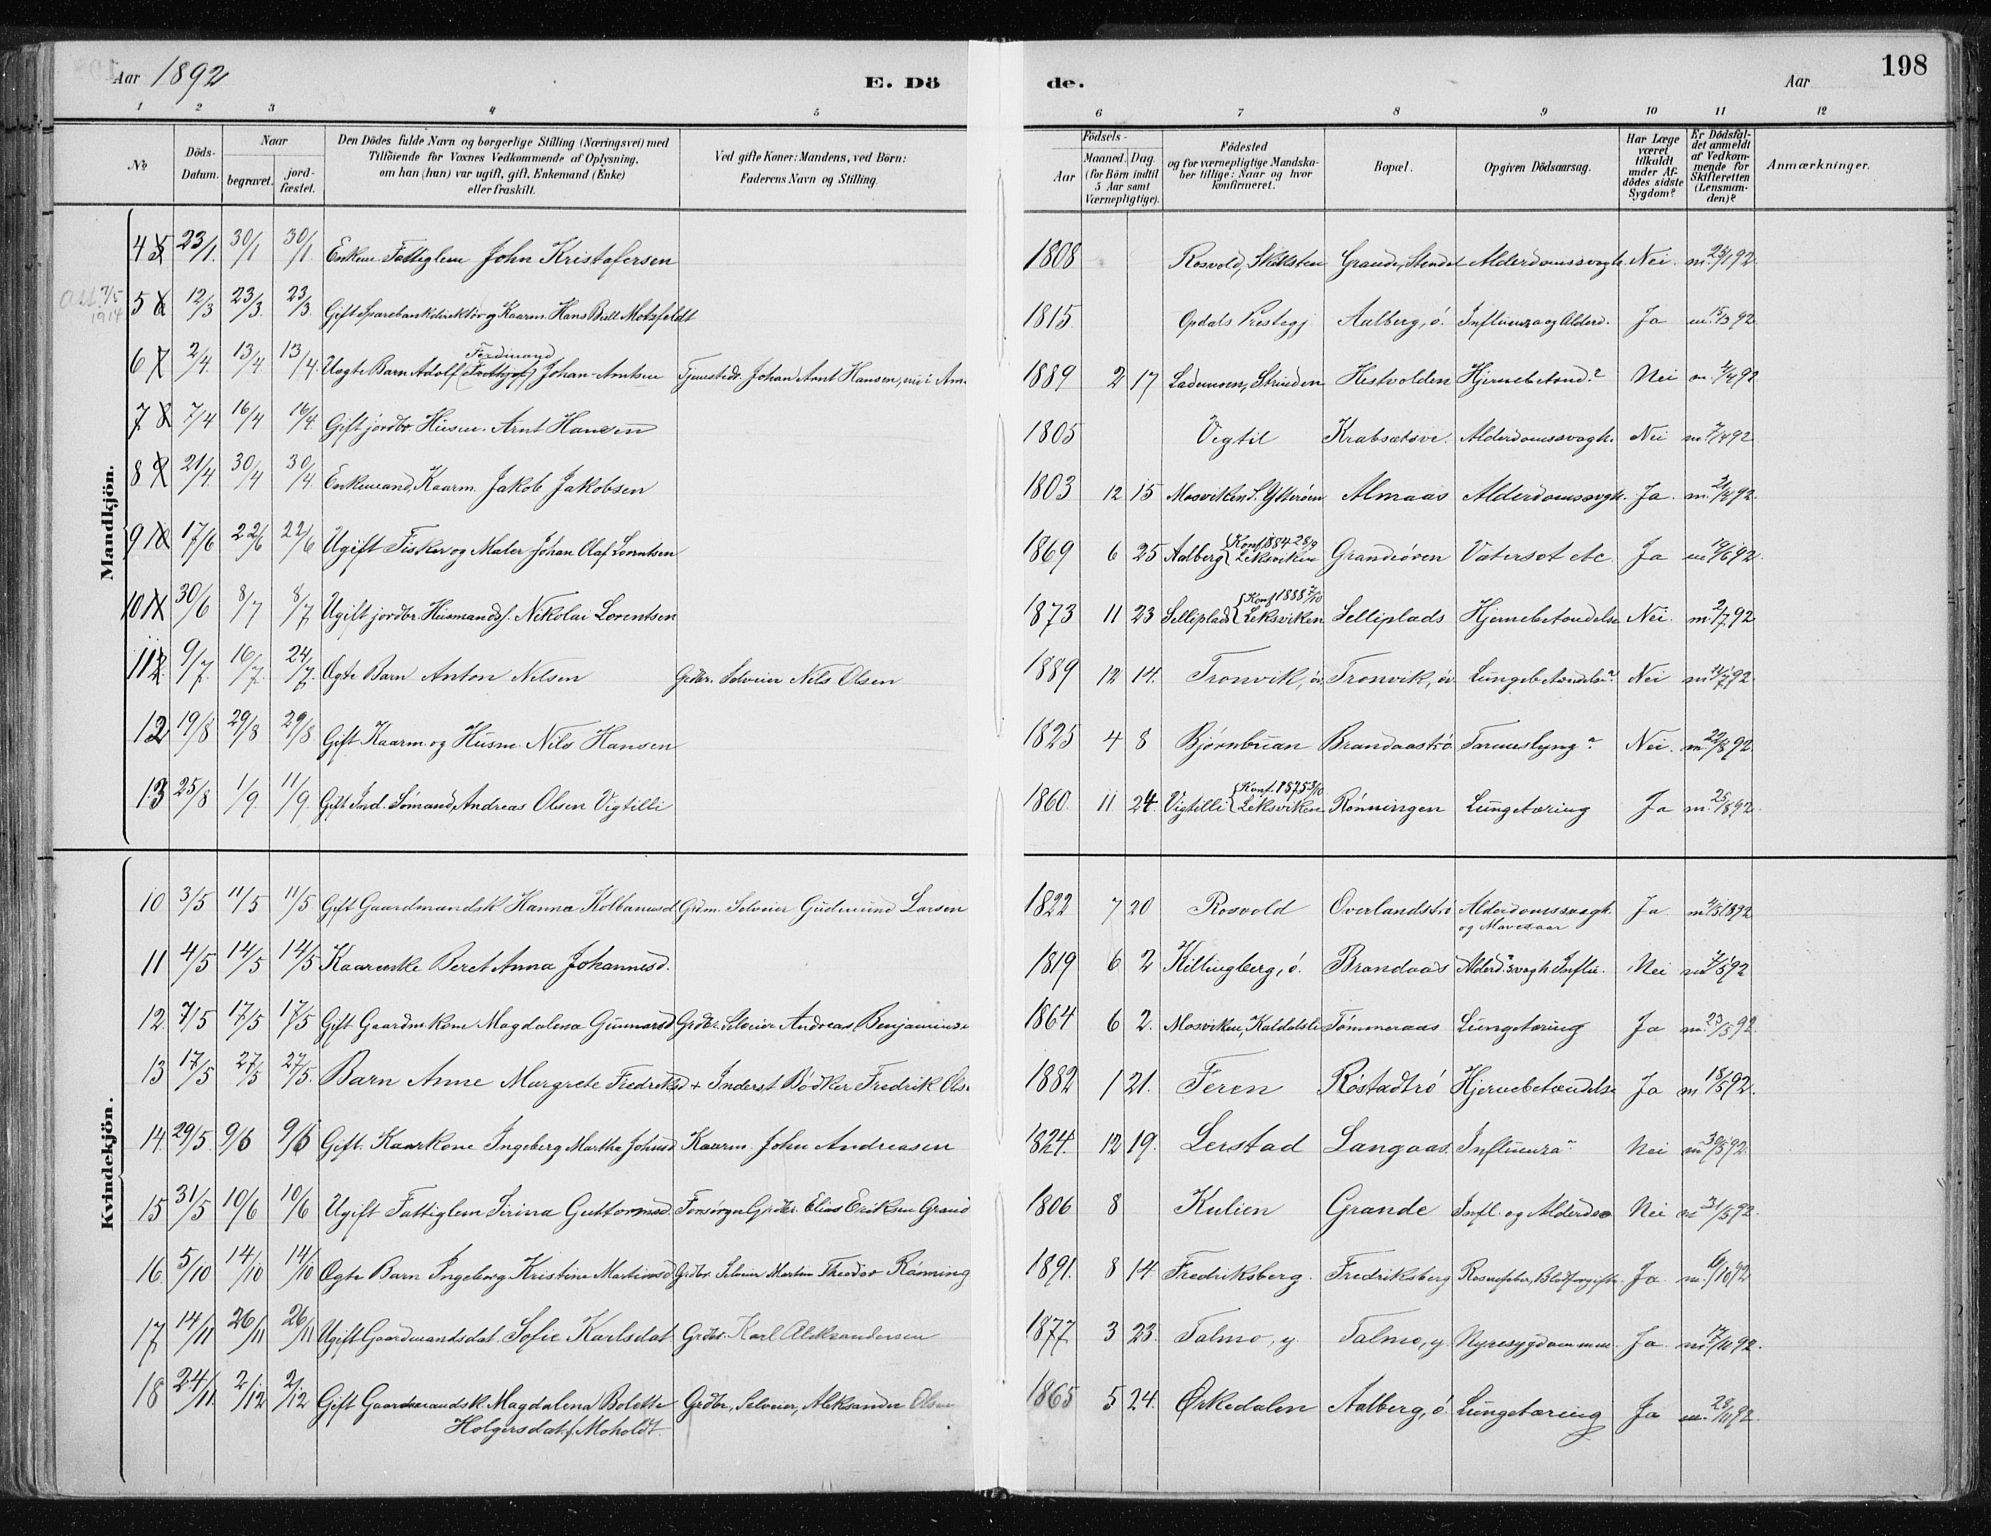 Aar 1892
E. Dö de.
Aar
198
1 2 3 4 5 6 7 8 9 10 11 12
No
Döds-Datum.
Naar begravet. jordfæstet.
Den Dödes fulde Navn og borgerlige Stilling (Næringsvei) med Tilföiende for Voxnes Vedkommende af Oplysning, om han (hun) var ugift, gift, Enkemand (Enke) eller fraskilt.
Ved gifte Koner: Mandens, ved Börn: Faderens Navn og Stilling.
Födsels-
Aar
Maaned. Dag. (for Börn indtil 5 Aar samt Værnepligtige).
Födested og for værnepligtige Mandskaber tillige: Naar og hvor konfirmeret.
Bopæl.
Opgiven Dödsaarsag.
Har Læge været tilkaldt under Afdödes sidste Sygdom?
Er Dödsfaldet anmeldt af Vedkommende for Skifteretten (Lensmanden)?
Anmærkninger.
Mandkjön.
4 23/1. 30/1 30/1 Enkem. Fattiglem John Kristofersen 1808 Rosvold, Grande, Alderdomssvagh. Nei. m. 25/1 92.
7/5 1914
5 12/3 23/3. 23/3. Gift Sparebankdirektör og Kaarm. Hans Bull Motzfeldt 1815. Opdals Prestegj Aalberg, ö. Influenza og Alderd. Ja m. 15/3 92
6 2/4. 13/4 13/4. Uægte Barn Adolf Ferdinand Johan Arntsen Tjenestedr. Johan Arnt Hansen, nu i Am 1889 2 17 Lademoen, Strinden Hestvolden Hjernebetænd? Nei m. 4/4 92
7. 7/4 16/4 16/4. Gift jordbr. Husm. Arnt Hansen 1805 Vigtil Krabsætsve. Alderdomssvagh. Nei m. 7/4 92
8 21/4. 30/4 30/4. Enkemand, Kaarm. Jakob Jakobsen 1803 12 15 Mosviken S. Ytteröen Almaas Alderdomssvagh. Ja. m. 21/4 92.
9 17/6 22/6 22/6 Ugift Fisker og Maler Johan Olaf Lorentsen 1869 6 25 Aalberg {Konf 1884 28/9 Leksviken Grandeören Vatersot etc Ja m. 19/6 92.
10 30/6 8/7 8/7 Ugift jordbr. Husmands. Nikolai Lorentsen 1873 11 23 Selliplads {Konf 1888 7/10 Leksviken Selliplads Hjernebetændelse Nei. m. 2/7 92
11 9/7. 16/7. 24/7. Ægte Barn Anton Nilsen Grdbr. Selveier Nils Olsen 1889 12 14. Tronvik, öv. Tronvik, öv. Lungebetændelse? Nei m. 11/7 92.
12 19/8 29/8 29/8 Gift Kaarm. og Husm. Nils Hansen 1825 4 8 Björnbuan Brandaaströ Tarmeslyng? Nei. m. 22/8 92.
13 25/8 1/9. 11/9. Gift Ind. Sömand, Andreas Olsen Vigtilli 1860. 11. 24. Vigtilli {Konf. 1875 3/10. Leksviken Rönningen Lungetæring Ja m. 25/8 92.
Kvindekjön.
10 3/5 11/5 11/5 Gift Gaardmandsk Hanna Kolbanusd. Grdm. Selveier Gudmund Larsen 1822 7 20 Rosvold Overlandströ Alderdomssvagh. og Mavesaar Ja. m. 4/5 1892
11 4/5 14/5 14/5 Kaarenke Beret Anna Johannesd. 1819 6 2 Killingberg, ö. Brandaas Alderd. svagh. Influ. Nei m. 7/5 92
12 7/5 17/5 17/5 Gift Gaardmkone Magdalena Gunnarsd Grdbr. Selveier Andreas Benjamins 1864 6 2. Mosviken, Kaldalsli Tömmeraas Lungetæring Ja m. 23/5 92.
13 17/5 27/5 27/5. Barn Anne Margrete Fredriksd + Inderst Bödker Fredrik Ols 1882 1 21. Feren Röstadtrö Hjernebetændelse Ja m 18/5 92.
14. 29/5 9/6 9/6 Gift. Kaarkone Ingeberg Martha Johnsd Kaarm. John Andreasen 1824. 12 19. Lerstad Langaas. Influenza Nei m 30/5 92.
15 31/5 10/6 10/6 Ugift Fattiglem Sirina Guttormsd. Forsörger Grdbr. Elias Eriksen Grand 1806 8 Kulien Grande Infl. og Alderds Nei m 31/5 92.
16. 5/10 14/10 14/10 Ægte Barn Ingeborg Kristine Martinsd Grdbr. Selveier Martin Theodor Rönning 1891. 8 14 Fredriksberg. Fredriksberg Rosenfeber, Blodforgift. Ja. m. 6/10 92
17 14/11 26/11 26/11 Ugift Gaardmandsdat. Sofie Karlsdat. Grdbr. Karl Aleksandersen 1877 3 23. Talmo, y. Talmo, y. Nyresygdommme Ja m. 17/11 92.
18 24/11. 2/12 2/12 Gift Gaardmandsk. Magdalena Bolette Grdbr, Selveier, Aleksander Olsen 1865 5 24. Ørkedalen Aalberg, ö. Lungetæring Ja m. 28/11 92.
Holgersdat. f. Moholdt.